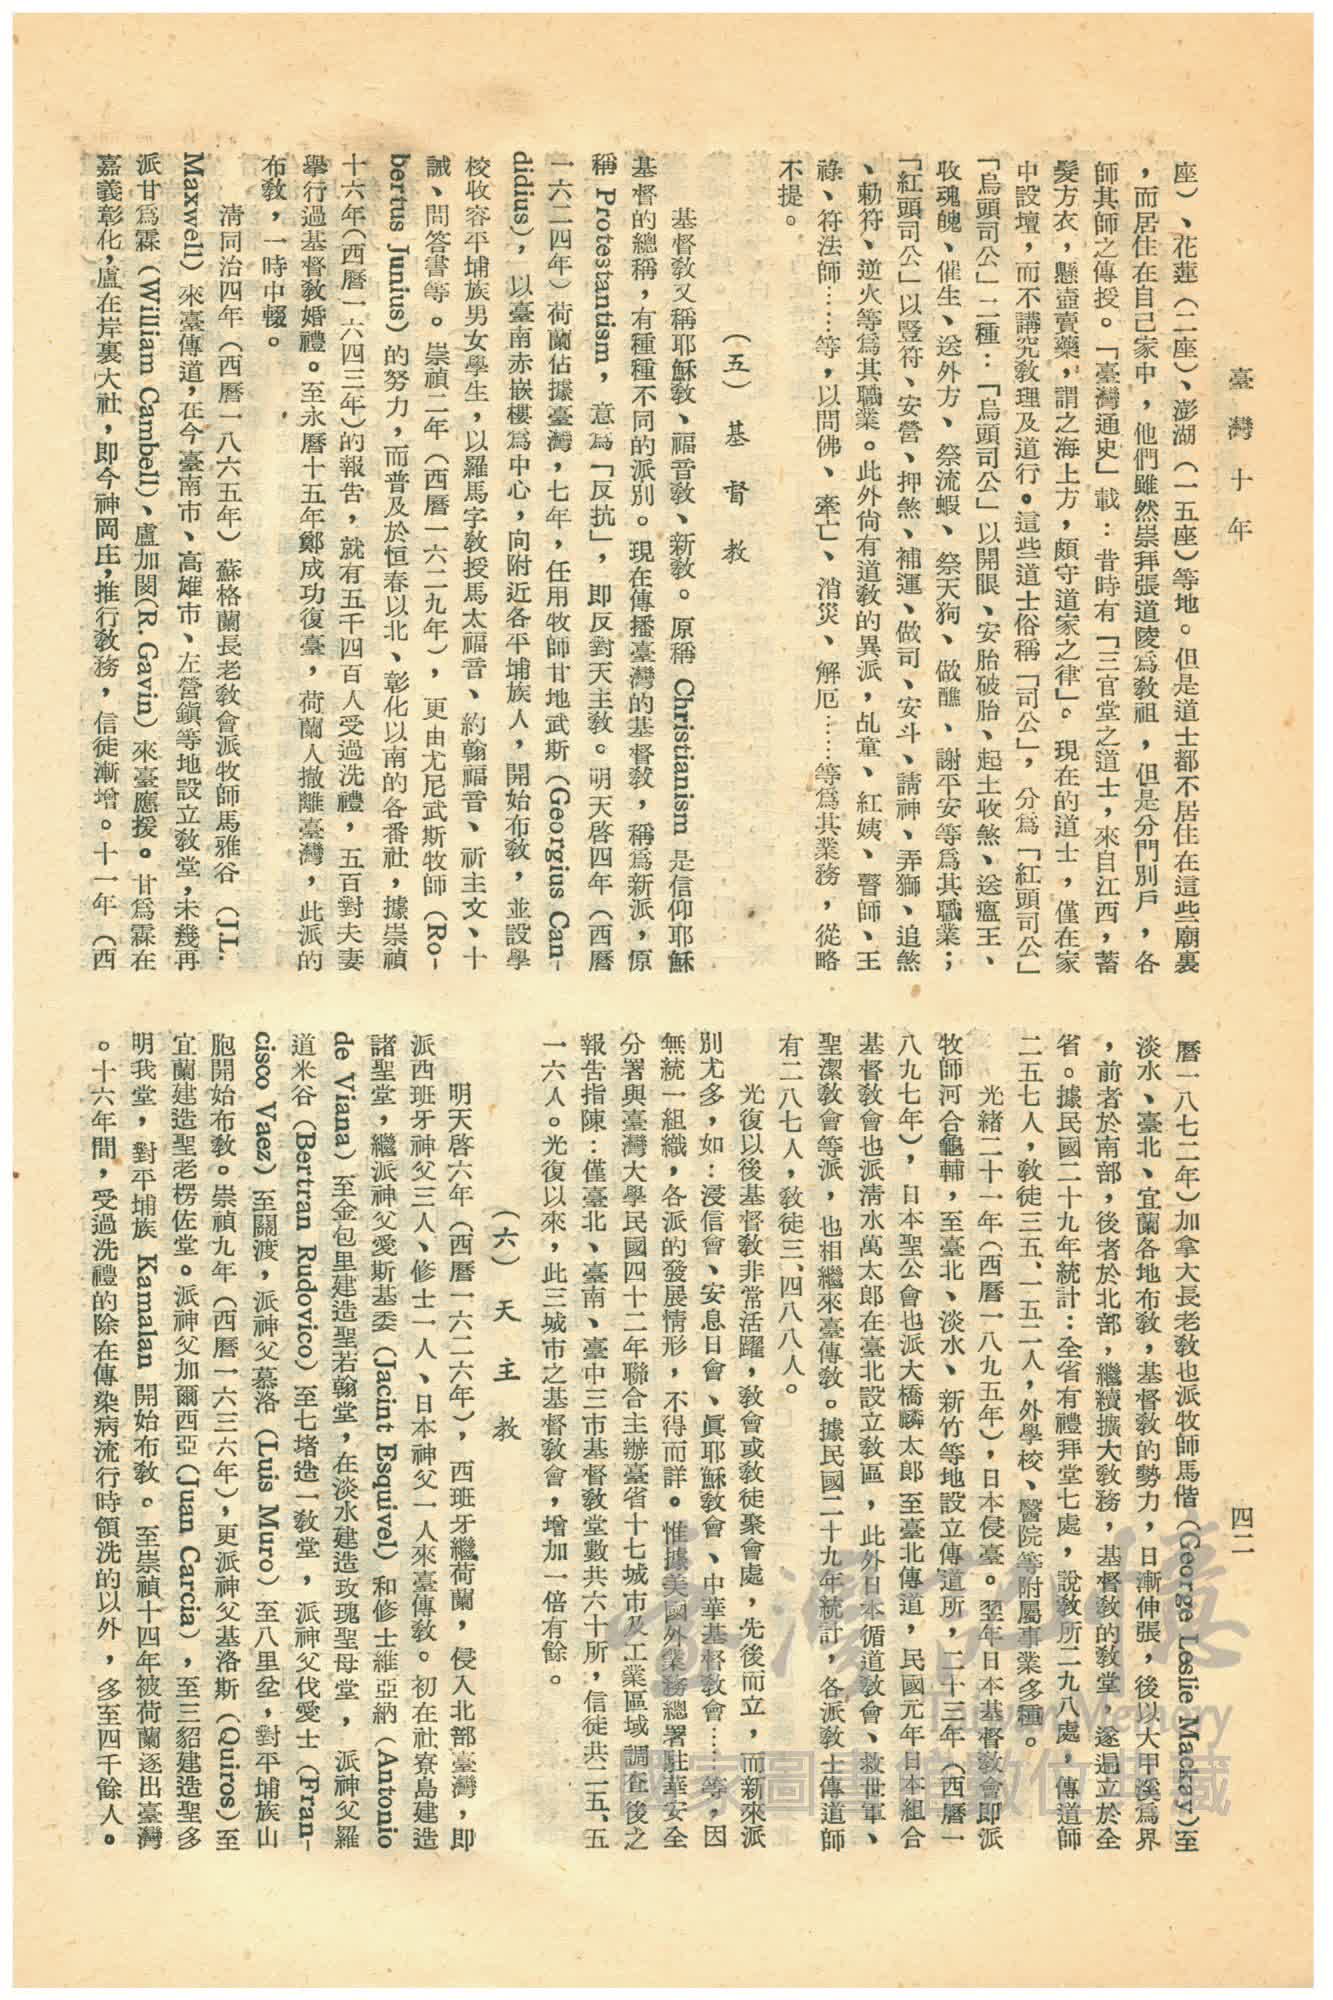 臺灣十年
四二
座）、花蓮（二座）、澎湖（一五座）等地。但是道士都不居住在這些廟裏
，而居住在自己家中，他們雖然崇拜張道陵爲敎祖，但是分門別戶，各
師其師之傳授。「臺灣通史」載：昔時有「三官堂之道士，來自江西，蓄
髮方衣，懸壺賣藥，謂之海上方，頗守道家之律」。現在的道士，僅在家
中設壇，而不講究敎理及道行。這些道士俗稱「司公」，分爲「紅頭司公」
「烏頭司公」二種：「烏頭司公」以開眼、安胎破胎、起土收煞、送瘟王、
收魂魄、催生、送外方、祭流蝦、祭天狗、做醮、謝平安等爲其職業；
「紅頭司公」以豎符、安營、押煞、補運、做司、安斗、請神、弄獅、追煞
、勅符、逆火等爲其職業。此外尙有道敎的異派，乩童、紅姨、瞖師、王
祿、符法師……等，以問佛、牽亡、消災、解厄……等爲其業務，從略
不提。
（五）基督敎
基督敎又稱耶穌敎、福音敎、新敎。原稱 Christianism 是信仰耶穌
基督的總稱，有種種不同的派別。現在傳播臺灣的基督敎，稱爲新派，原
稱 Protestantism，意爲「反抗」，即反對天主敎。明天啓四年（西曆
一六二四年）荷蘭佔據臺灣，七年，任用牧師甘地武斯（Georgius Can-
didius），以臺南赤嵌樓爲中心，向附近各平埔族人，開始布敎，並設學
校收容平埔族男女學生，以羅馬字敎授馬太福音、約翰福音、祈主文、十
誡、問答書等。崇禎二年（西曆一六二九年），更由尤尼武斯牧師（Ro-
bertus Junius）的努力，而普及於恒春以北、彰化以南的各番社，據崇禎
十六年（西曆一六四三年）的報告，就有五千四百人受過洗禮，五百對夫妻
擧行過基督敎婚禮。至永曆十五年鄭成功復臺，荷蘭人撤離臺灣，此派的
布敎，一時中輟。
淸同治四年（西曆一八六五年）蘇格蘭長老敎會派牧師馬雅谷（J.L.
Maxwell）來臺傳道，在今臺南市、高雄市、左營鎭等地設立敎堂，未幾再
派甘爲霖（William Cambell）、盧加閔（R. Gavin）來臺應援。甘爲霖在
嘉義彰化，盧在岸裏大社，即今神岡庄，推行敎務，信徒漸增。十一年（西
曆一八七二年）加拿大長老敎也派牧師馬偕（George Leslie Mackay）至
淡水、臺北、宜蘭各地布敎，基督敎的勢力，日漸伸張，後以大甲溪爲界
，前者於南部，後者於北部，繼續擴大敎務，基督敎的敎堂，遂遍立於全
省。據民國二十九年統計：全省有禮拜堂七處，說敎所二九八處，傳道師
二五七人，敎徒三五、一五二人，外學校、醫院等附屬事業多種。
光緖二十一年（西曆一八九五年），日本侵臺。翌年日本基督敎會即派
牧師河合龜輔，至臺北、淡水、新竹等地設立傳道所，二十三年（西曆一
八九七年），日本聖公會也派大橋麟太郎至臺北傳道，民國元年日本組合
基督敎會也派淸水萬太郎在臺北設立敎區，此外日本循道敎會、救世軍、
聖潔敎會等派，也相繼來臺傳敎。據民國二十九年統計，各派敎士傳道師
有二八七人，敎徒三、四八八人。
光復以後基督敎非常活躍，敎會或敎徒聚會處，先後而立，而新來派
別尤多，如：浸信會、安息日會、眞耶穌敎會、中華基督敎會……等，因
無統一組織，各派的發展情形，不得而詳。惟據美國外業務總署駐華安全
分署與臺灣大學民國四十二年聯合主辦臺省十七城市及工業區域調査後之
報告指陳：僅臺北、臺南、臺中三市基督敎堂數共六十所，信徒共二五、五
一六人。光復以來，此三城市之基督敎會，增加一倍有餘。
（六）天主敎
明天啓六年（西曆一六二六年），西班牙繼荷蘭，侵入北部臺灣，即
派西班牙神父三人、修士一人、日本神父一人來臺傳敎。初在社寮島建造
諸聖堂，繼派神父愛斯基委（Jacint Esquivel）和修士維亞納（Antonio
de Viana）至金包里建造聖若翰堂，在淡水建造玫瑰聖母堂，派神父羅
道米谷（Bertran Rudovico）至七堵造一敎堂，派神父伐愛士（Fran-
cisco Vaez）至關渡，派神父慕洛（Luis Muro）至八里坌，對平埔族山
胞開始布敎。崇禎九年（西曆一六三六年），更派神父基洛斯（Quiros）至
宜蘭建造聖老楞佐堂。派神父加爾西亞（Juan Carcia），至三貂建造聖多
明我堂，對平埔族 Kamalan 開始布敎。至崇禎十四年被荷蘭逐出臺灣
。十六年間，受過洗禮的除在傳染病流行時領洗的以外，多至四千餘人。
臺灣記憶
Taiwan Memory
國家圖書館數位典藏